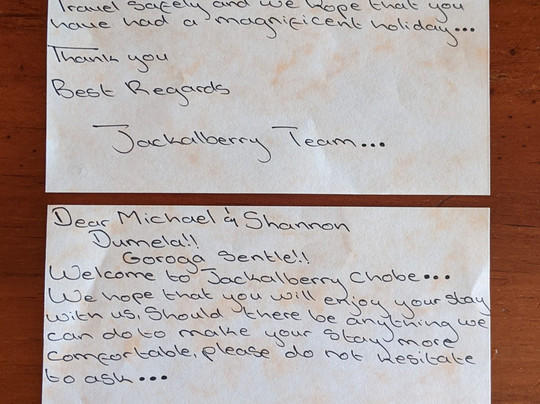 Travel safely and we hope that you
have had a magnificent holiday...
Thank you
Best Regards
Jackalberry Team...
Dear Michael & Shannon
Dumela!!
Goroga Sentle!!
Welcome to Jackalberry Chobe...
We hope that you will enjoy your stay
with us, Should there be anything we
can do to make your stay more
comfortable, please do not hesitate
to ask...